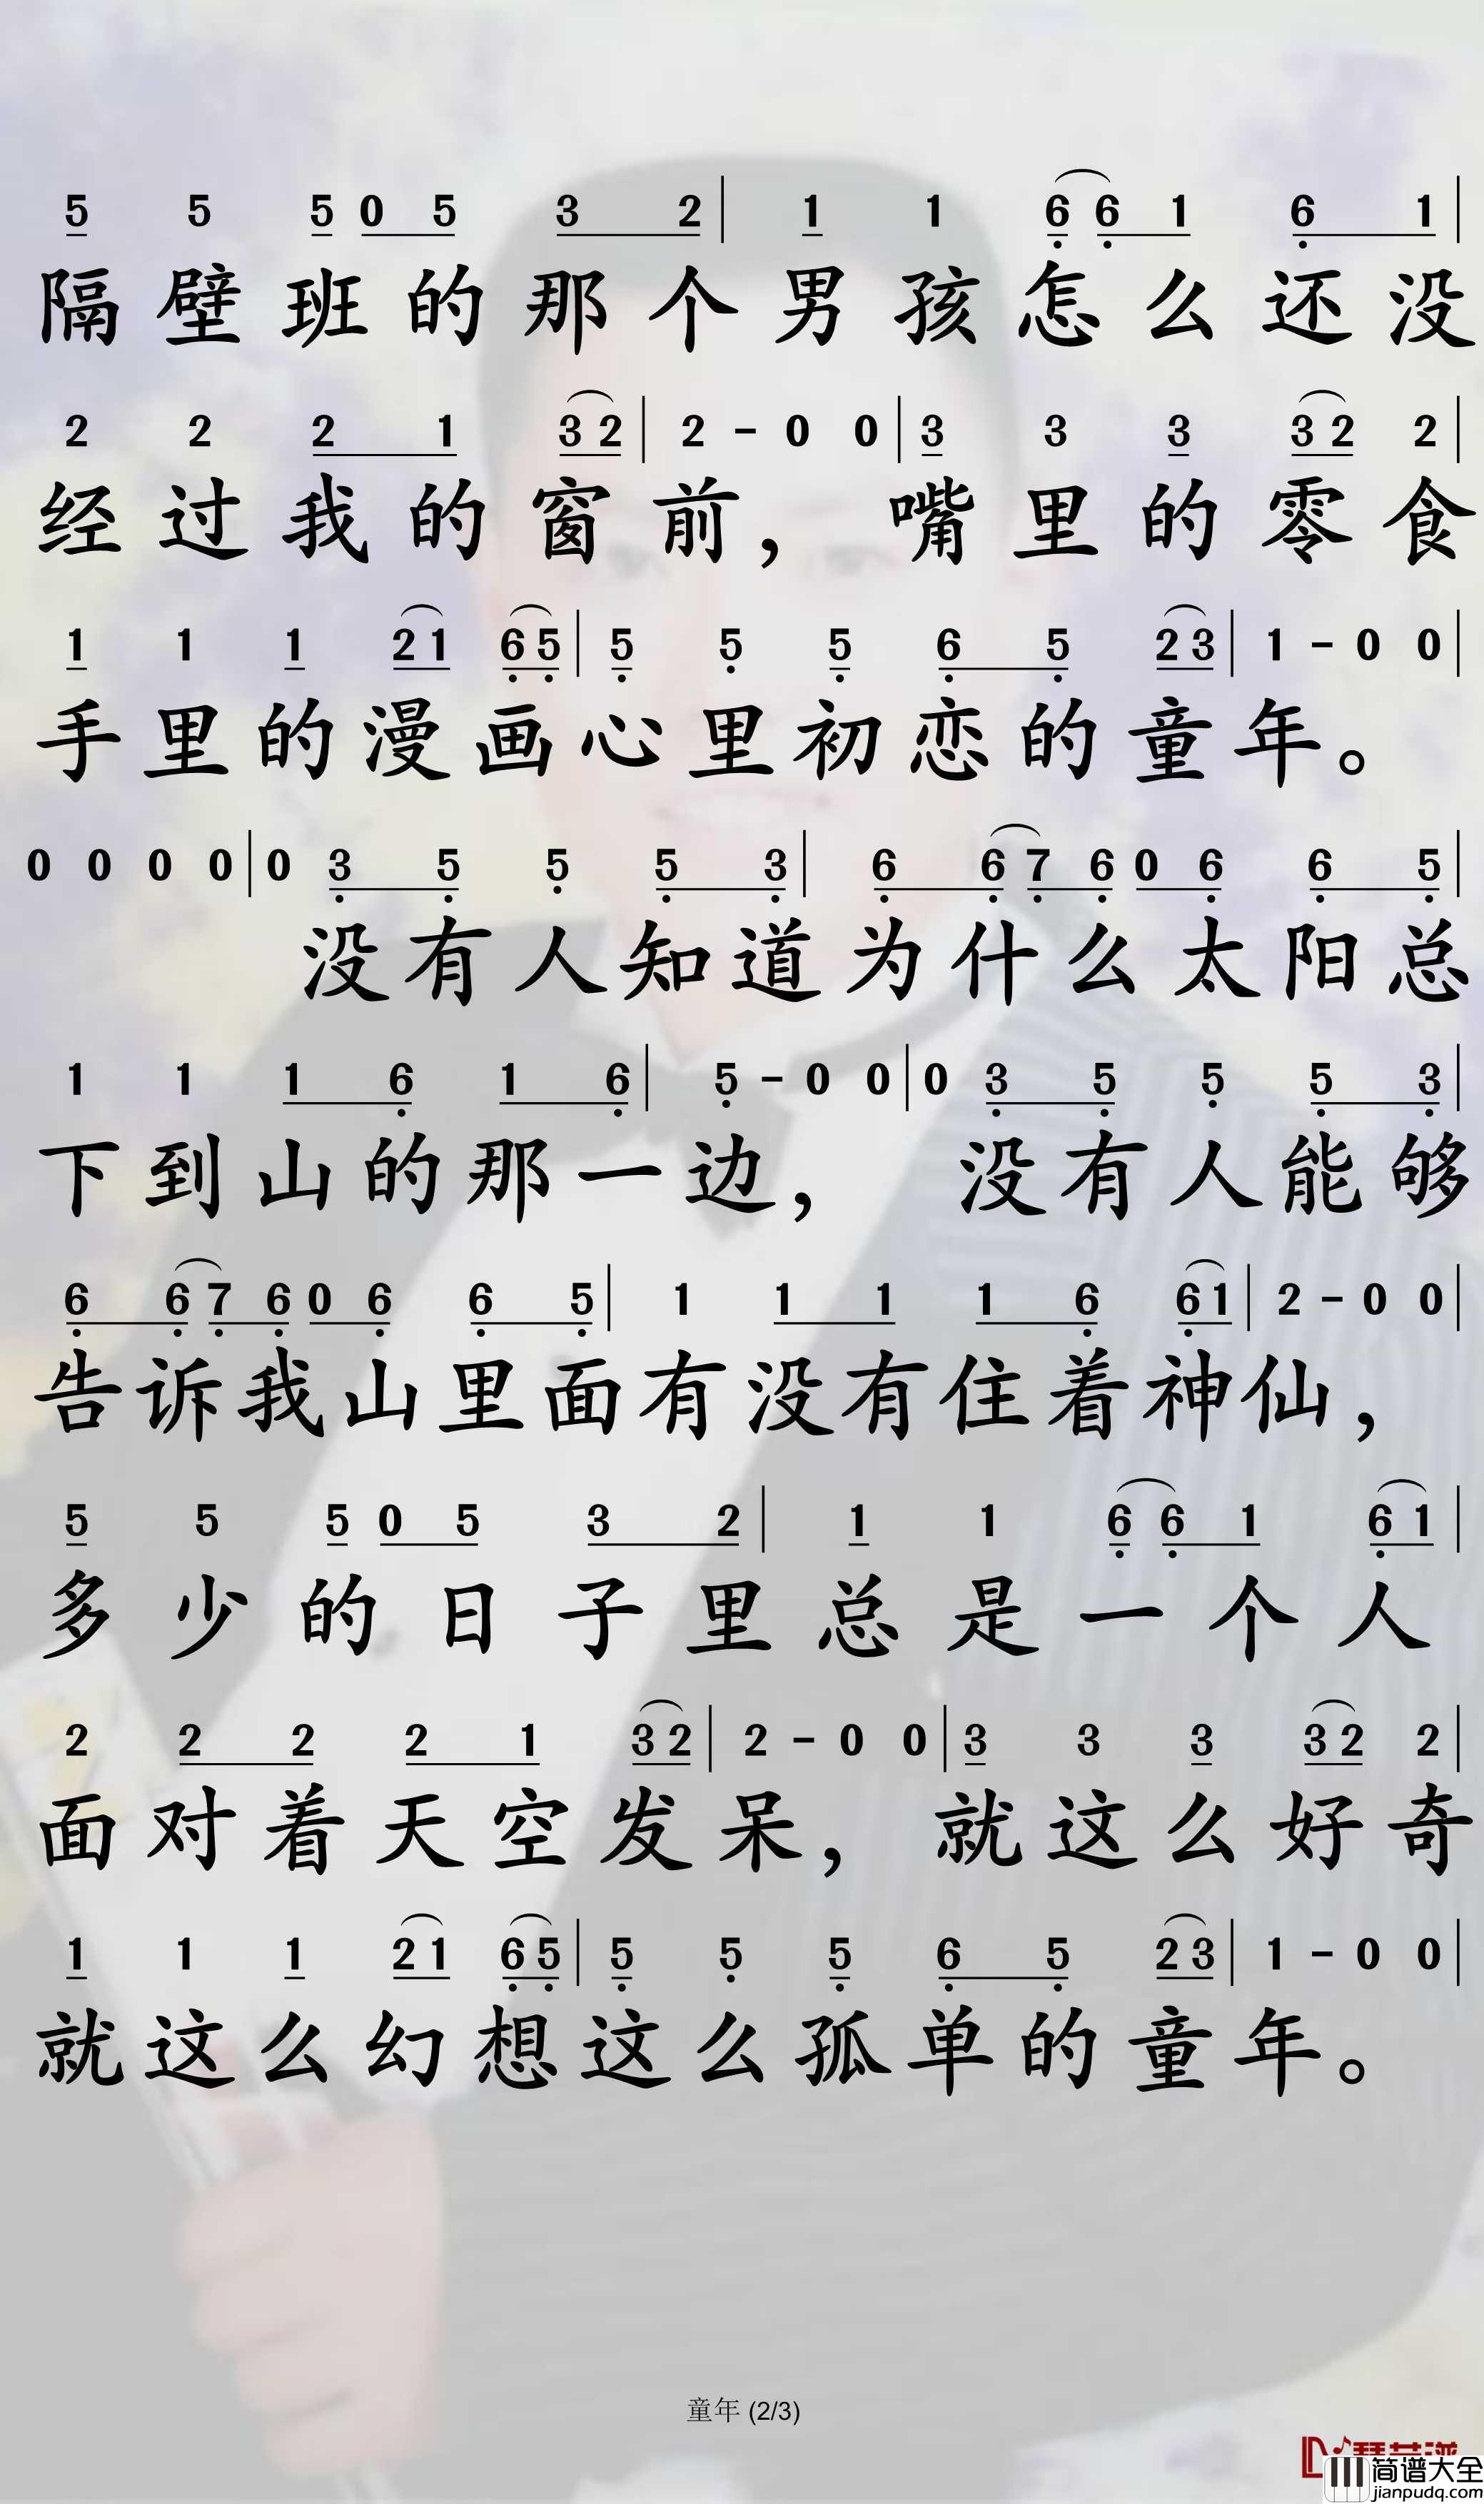 5 5 5 0 5 3 2 | 1 1 6 6 1 6 1 |
隔壁班的那个男孩怎么还没
2 2 2 1 3 2 | 2 - 0 0 | 3 3 3 3 2 2 |
经过我的窗前，嘴里的零食
1 1 1 2 1 6 5 | 5 5 5 6 5 2 3 | 1 - 0 0 |
手里的漫画心里初恋的童年。
0 0 0 0 | 0 3 5 5 5 3 | 6 6 7 6 0 6 6 5 |
没有人知道为什么太阳总
1 1 1 6 1 6 | 5 - 0 0 | 0 3 5 5 5 3 |
下到山的那一边，没有人能够
6 6 7 6 0 6 6 5 | 1 1 1 1 6 6 1 | 2 - 0 0 |
告诉我山里面有没有住着神仙，
5 5 5 0 5 3 2 | 1 1 6 6 1 6 1 |
多少的日子里总是一个人
2 2 2 2 1 3 2 | 2 - 0 0 | 3 3 3 3 2 2 |
面对着天空发呆，就这么好奇
1 1 1 2 1 6 5 | 5 5 5 6 5 2 3 | 1 - 0 0 |
就这么幻想这么孤单的童年。
童年 (2/3)
简谱大全
jianpudq.com